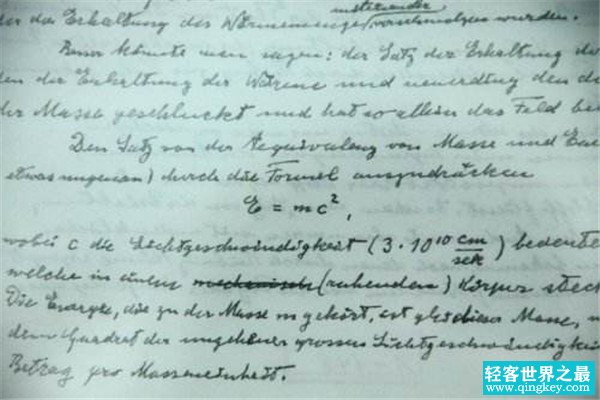 der das Erhaltung des Wärmemenge miteinander verschmolzen wurden.
Besser könnte man sagen: der Satz der Erhaltung de
den die Erhaltung der Wärme und neuerdings den de
der Masse geschluckt und hat so allein das Feld be
Den Satz von der Aequivalenz von Masse und Ene
etwas ungenau) durch die Formel auszudrücken
E = mc²,
wobei c die Lichtgeschwindigkeit (3 · 10¹⁰ cm/sek) bedeute
welche in einem (ruhenden) Körper steck
Die Energie, die zu der Masse m gehört, ist gleich dieser Masse,
dem Quadrat der ungeheuer grossen Lichtgeschwindigkei
Betrag pro Masseneinheit.
轻客世界之最
www.qingkey.com